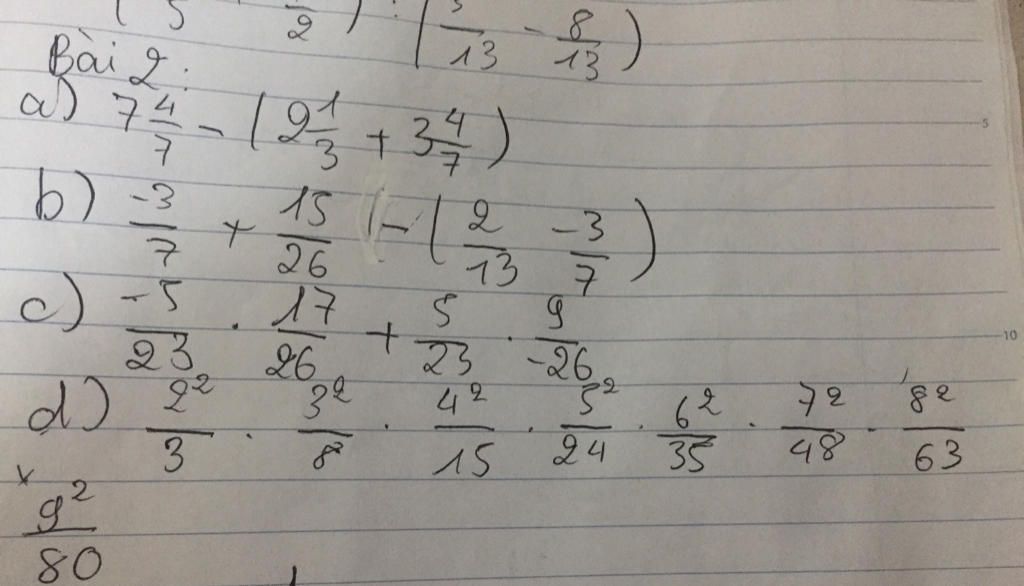 5 2 ) : ( 5/13 - 8/13 )
Bài 2:
a) 7 4/7 - ( 2 1/3 + 3 4/7 )
b) -3/7 + 15/26 - ( 2/13 -3/7 )
c) -5/23 . 17/26 + 5/23 . 9/-26
d) 2²/3 . 3²/8 . 4²/15 . 5²/24 . 6²/35 . 7²/48 . 8²/63
x 9²/80
5
10